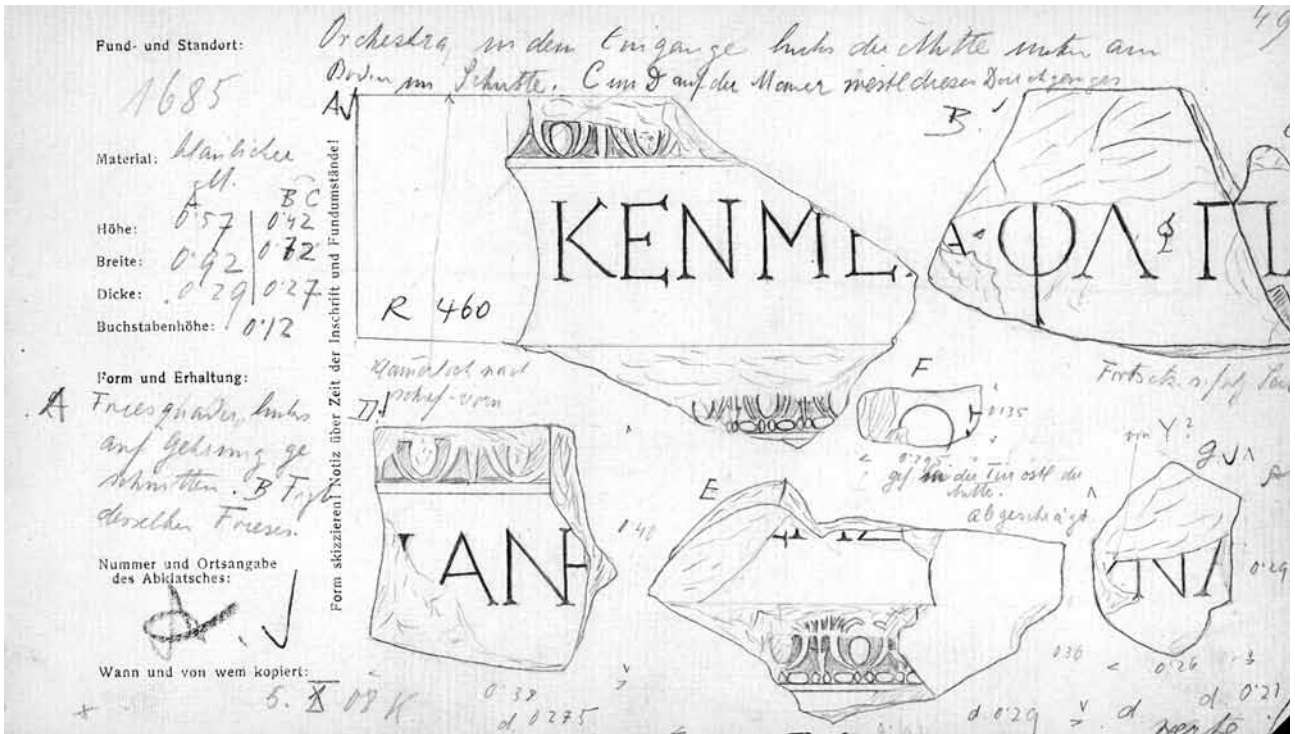 49
Fund- und Standort:
Orchestra, in dem Eingange links der Mitte unten am
Boden im Schutte. C und D auf der Mauer westl dieses Durchganges
1685
Material: blaulicher
A B C
Höhe: 0·57 0·42
Breite: 0·92 0·72
Dicke: 0·29 0·27
Buchstabenhöhe: 0·12
Form und Erhaltung:
A Friesquader, links
auf Gehrung ge
schnitten. B Frgt
desselben Frieses.
Nummer und Ortsangabe
des Abklatsches:
Wann und von wem kopiert:
5. X 08 K
Form skizzieren! Notiz über Zeit der Inschrift und Fundumstände!
A
KENM
R 460
B.
ΦΛΠ
Klammerloch nach
D
ΑΝΗ
0·40
0·38
d. 0275
E
036
d 0·29
F
0135
gef in der Tür östl der
Mitte.
abgeschrägt
Fortsetz.
von Y?
G
0·29
0·26
d. 0·21